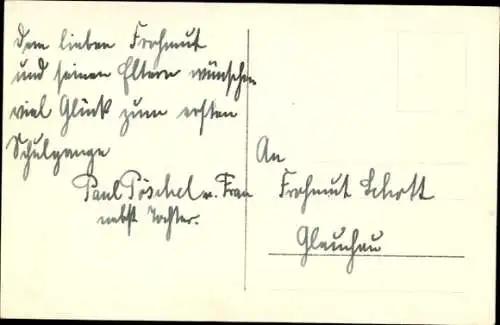 Dem lieben Frohmut
und seinen Eltern wünschen
viel Glück zum ersten
Schulgange
Paul Pöschel u. Frau
nebst Tochter.
An
Frohmut Schott
Glauchau